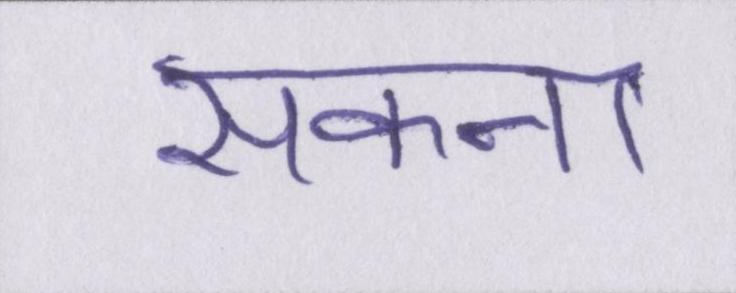 सकना